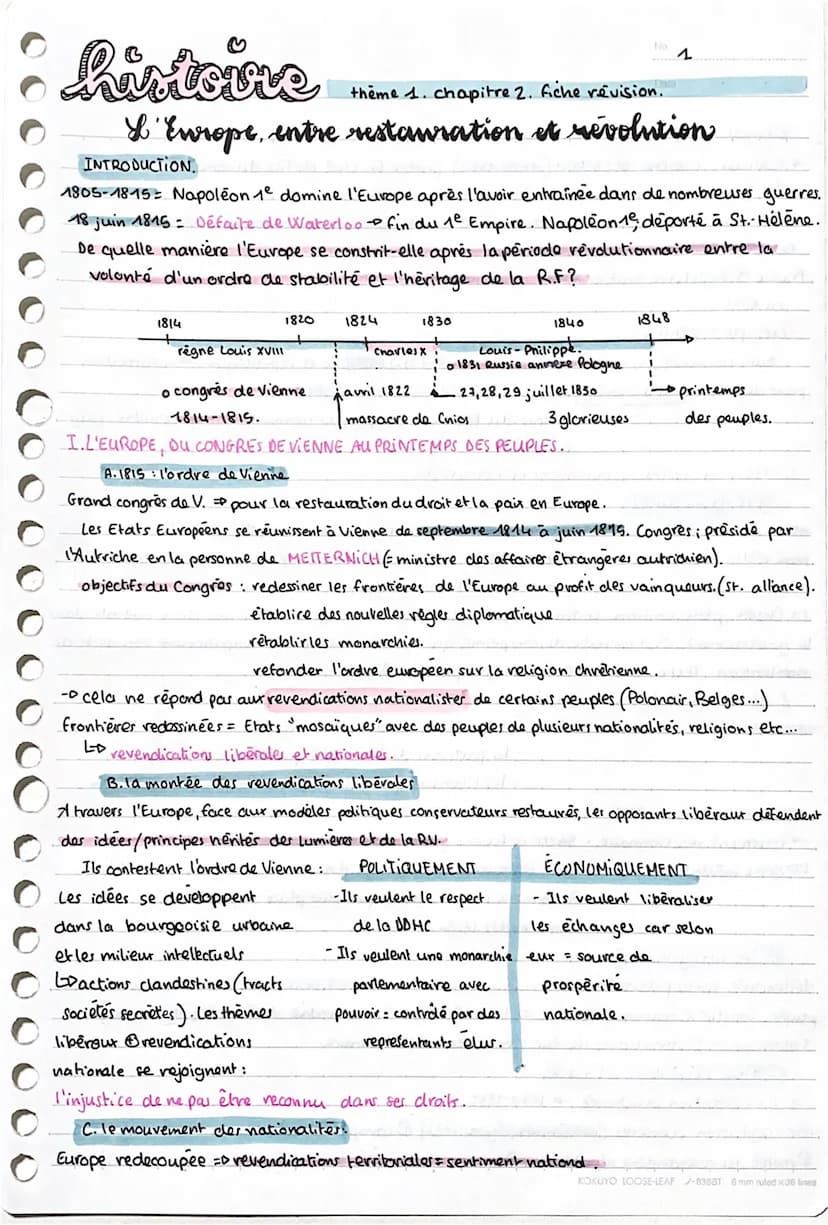 No. 1
histoire
Date
thème 1. chapitre 2. fiche révision.
L'Europe, entre restauration et révolution
INTRODUCTION.
1805-1815 = Napoléon 1e domine l'Europe après l'avoir entraînée dans de nombreuses guerres.
18 juin 1815 = Défaite de Waterloo → fin du 1e Empire. Napoléon 1e; déporté à St-Hélène.
De quelle manière l'Europe se constrit-elle après la période révolutionnaire entre la
volonté d'un ordre de stabilité et l'héritage de la R.F?
1814 1820 1824 1830 1840 1848
règne Louis XVIII Charles X Louis-Philippe.
o 1831 Russie annexe Pologne
o congrès de Vienne avril 1822 27,28,29 juillet 1830 → printemps
1814-1815. massacre de Chios 3 glorieuses des peuples.
I. L'EUROPE, DU CONGRES DE VIENNE AU PRINTEMPS DES PEUPLES.
A. 1815 : l'ordre de Vienne
Grand congrès de V. ⇒ pour la restauration du droit et la paix en Europe.
Les Etats Européens se réunissent à Vienne de septembre 1814 à juin 1815. Congrès ; présidé par
l'Autriche en la personne de METTERNICH (= ministre des affaires étrangères autrichien).
objectifs du Congrès : redessiner les frontières de l'Europe au profit des vainqueurs. (St. alliance).
établire des nouvelles règles diplomatique
rétablir les monarchies.
refonder l'ordre européen sur la religion chrétienne.
→ cela ne répond pas aux revendications nationalistes de certains peuples (Polonais, Belges...)
frontières redessinées = Etats "mosaïques" avec des peuples de plusieurs nationalités, religions etc...
↳ revendications libérales et nationales.
B. la montée des revendications libérales
A travers l'Europe, face aux modèles politiques conservateurs restaurés, les opposants libéraux défendent
des idées/principes hérités des Lumières et de la RV.
Ils contestent l'ordre de Vienne : POLITIQUEMENT ÉCONOMIQUEMENT
Les idées se développent -Ils veulent le respect - Ils veulent libéraliser
dans la bourgeoisie urbaine de la DDHC les échanges car selon
et les milieux intellectuels - Ils veulent une monarchie eux = source de
↳ actions clandestines (tracts parlementaire avec prospérité
sociétés secrètes). Les thèmes pouvoir = contrôlé par des nationale.
libéraux ⊕ revendications représentants élus.
nationale se rejoignent :
l'injustice de ne pas être reconnu dans ses droits.
C. le mouvement des nationalités:
Europe redecoupée ⇒ revendications territoriales = sentiment national.
KOKUYO LOOSE-LEAF ノ-836BT 6 mm ruled × 36 lines